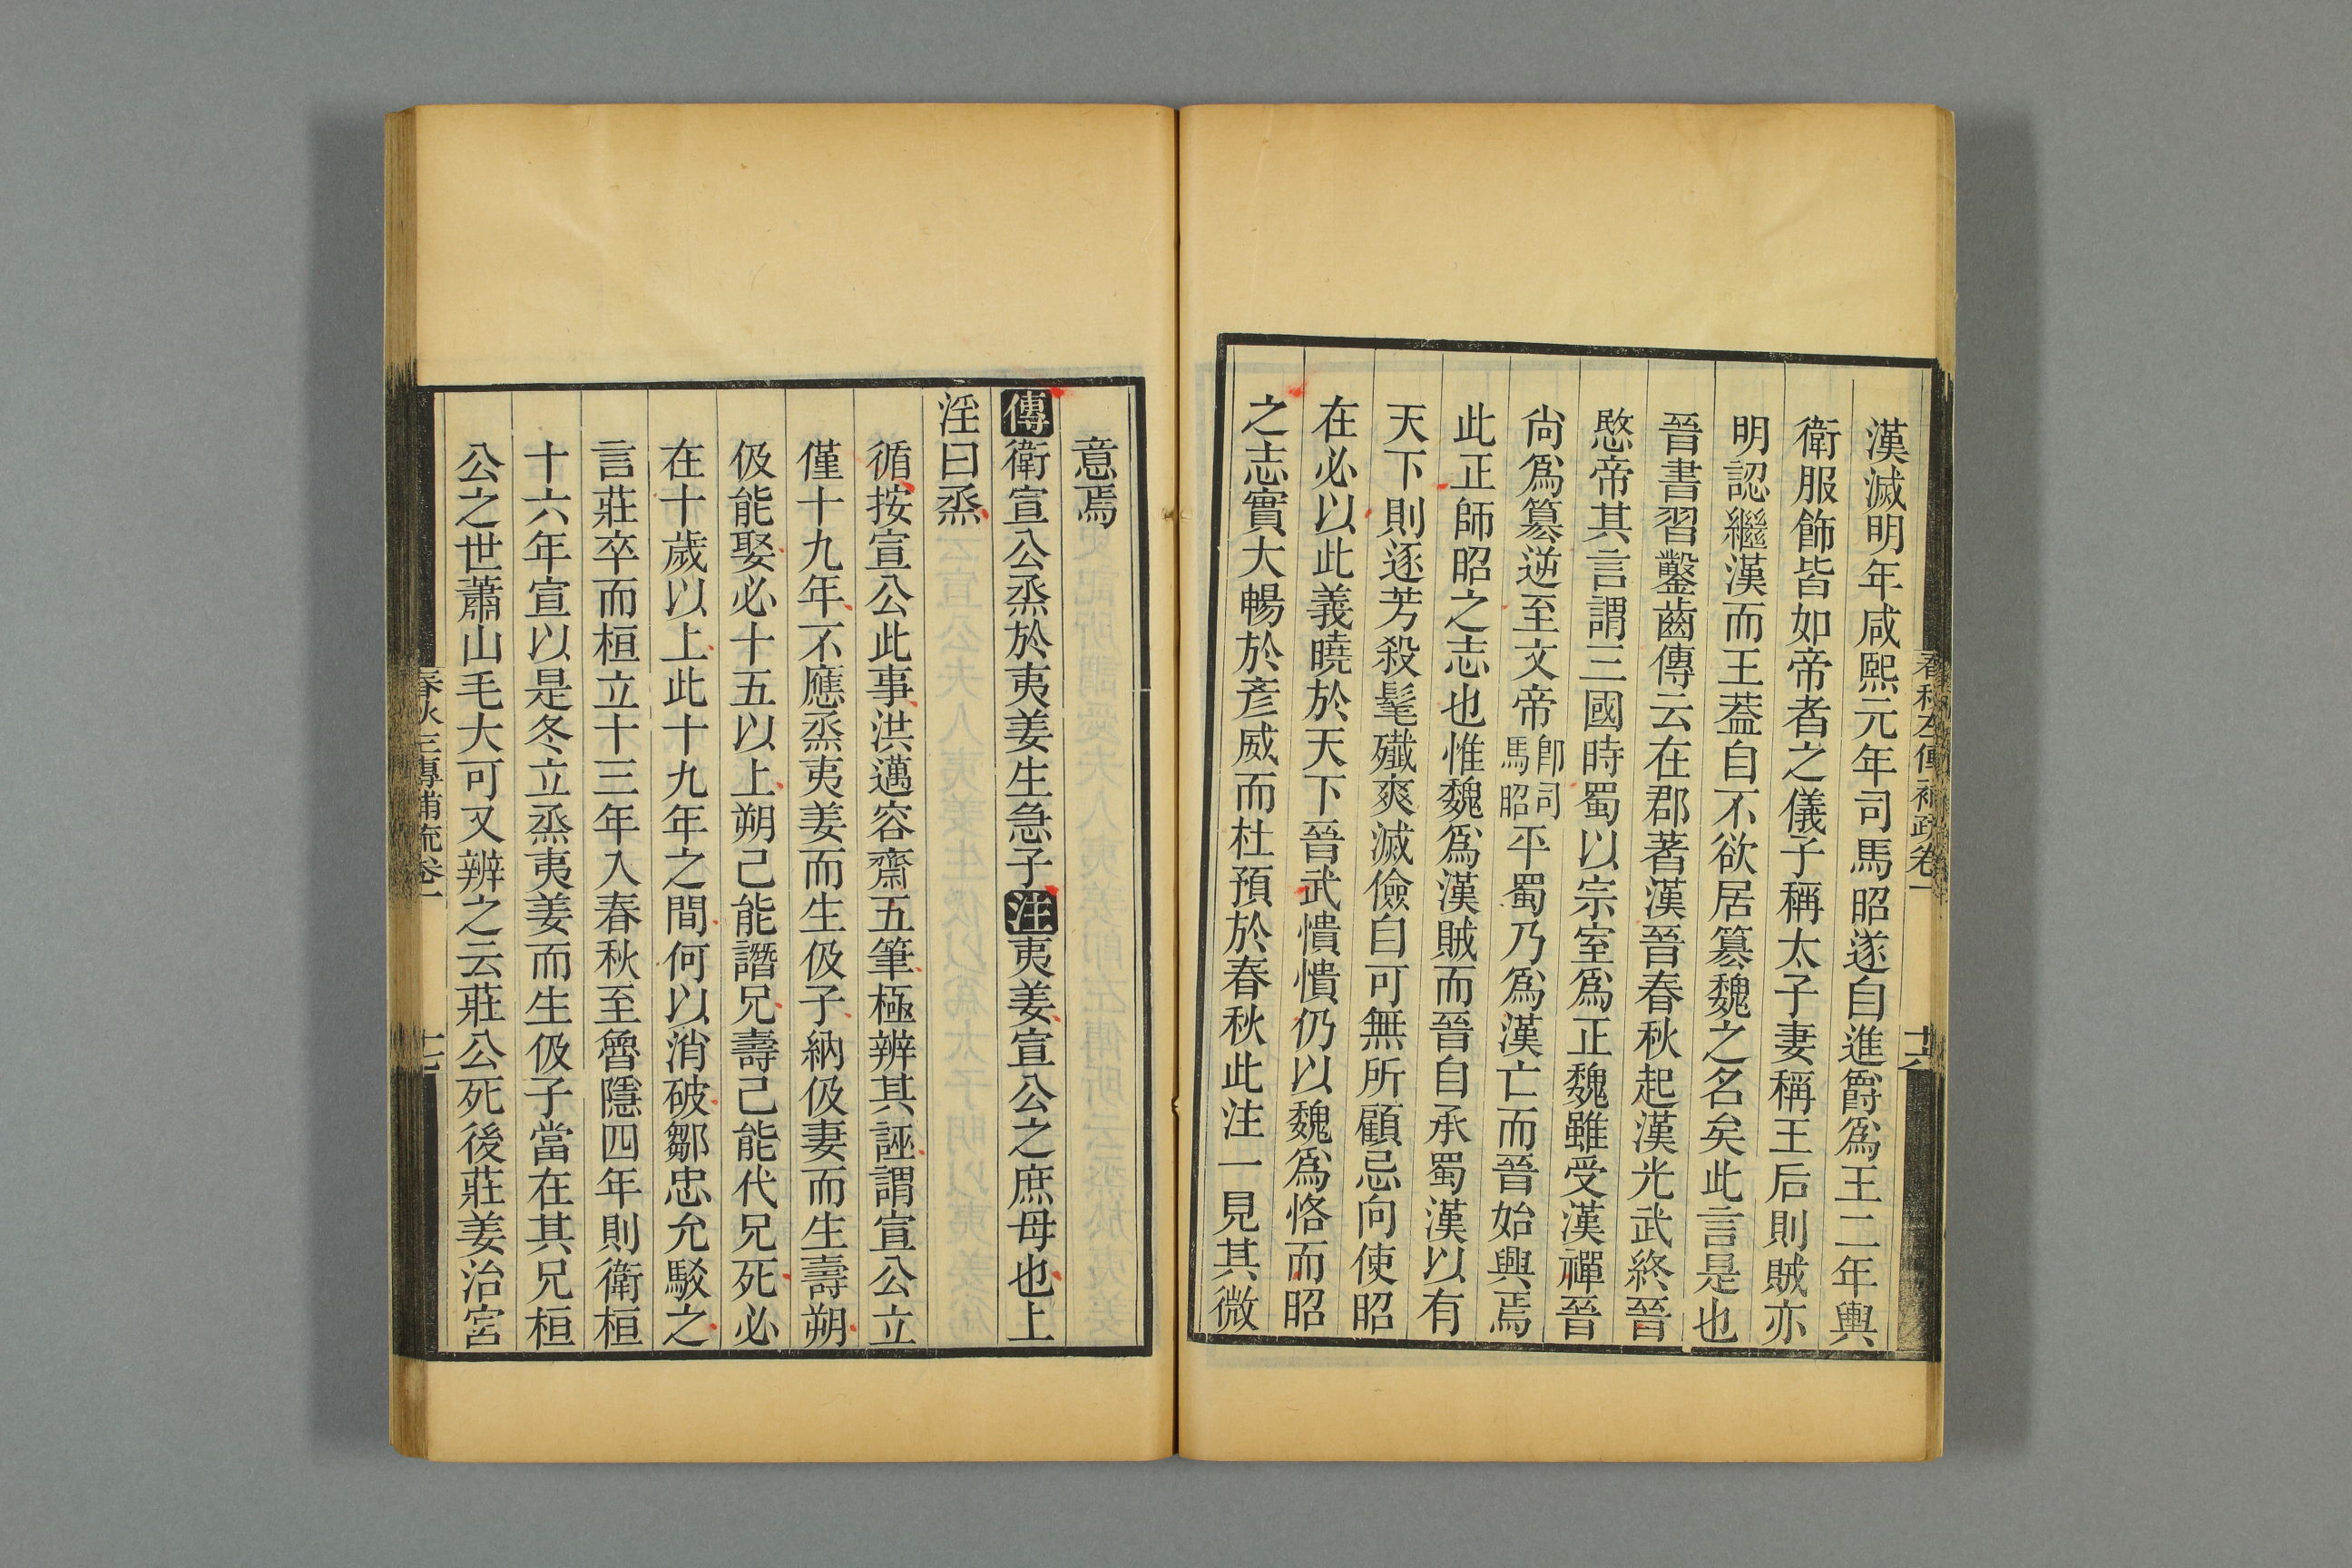 漢滅明年咸熙元年司馬昭遂自進爵爲王二年輿
衛服飾皆如帝者之儀子稱太子妻稱王后則賊亦
明認繼漢而王葢自不欲居篡魏之名矣此言是也
晉書習鑿齒傳云在郡著漢晉春秋起漢光武終晉
愍帝其言謂三國時蜀以宗室爲正魏雖受漢禪晉
尙爲篡逆至文帝卽司馬昭平蜀乃爲漢亡而晉始興焉
此正師昭之志也惟魏爲漢賊而晉自承蜀漢以有
天下則逐芳殺髦殱爽滅儉自可無所顧忌向使昭
在必以此義曉於天下晉武憒憒仍以魏爲恪而昭
之志實大暢於彥威而杜預於春秋此注一見其微
春秋左傳補疏卷一
十六
意焉
傳衛宣公烝於夷姜生急子注夷姜宣公之庶母也上
淫曰烝
循按宣公此事洪邁容齋五筆極辨其誣謂宣公立
僅十九年不應烝夷姜而生伋子納伋妻而生壽朔
伋能娶必十五以上朔己能譖兄壽己能代兄死必
在十歲以上此十九年之間何以消破鄒忠允駁之
言莊卒而桓立十三年入春秋至魯隱四年則衛桓
十六年宣以是冬立烝夷姜而生伋子當在其兄桓
公之世蕭山毛大可又辨之云莊公死後莊姜治宮
春秋三傳補疏卷一
十七